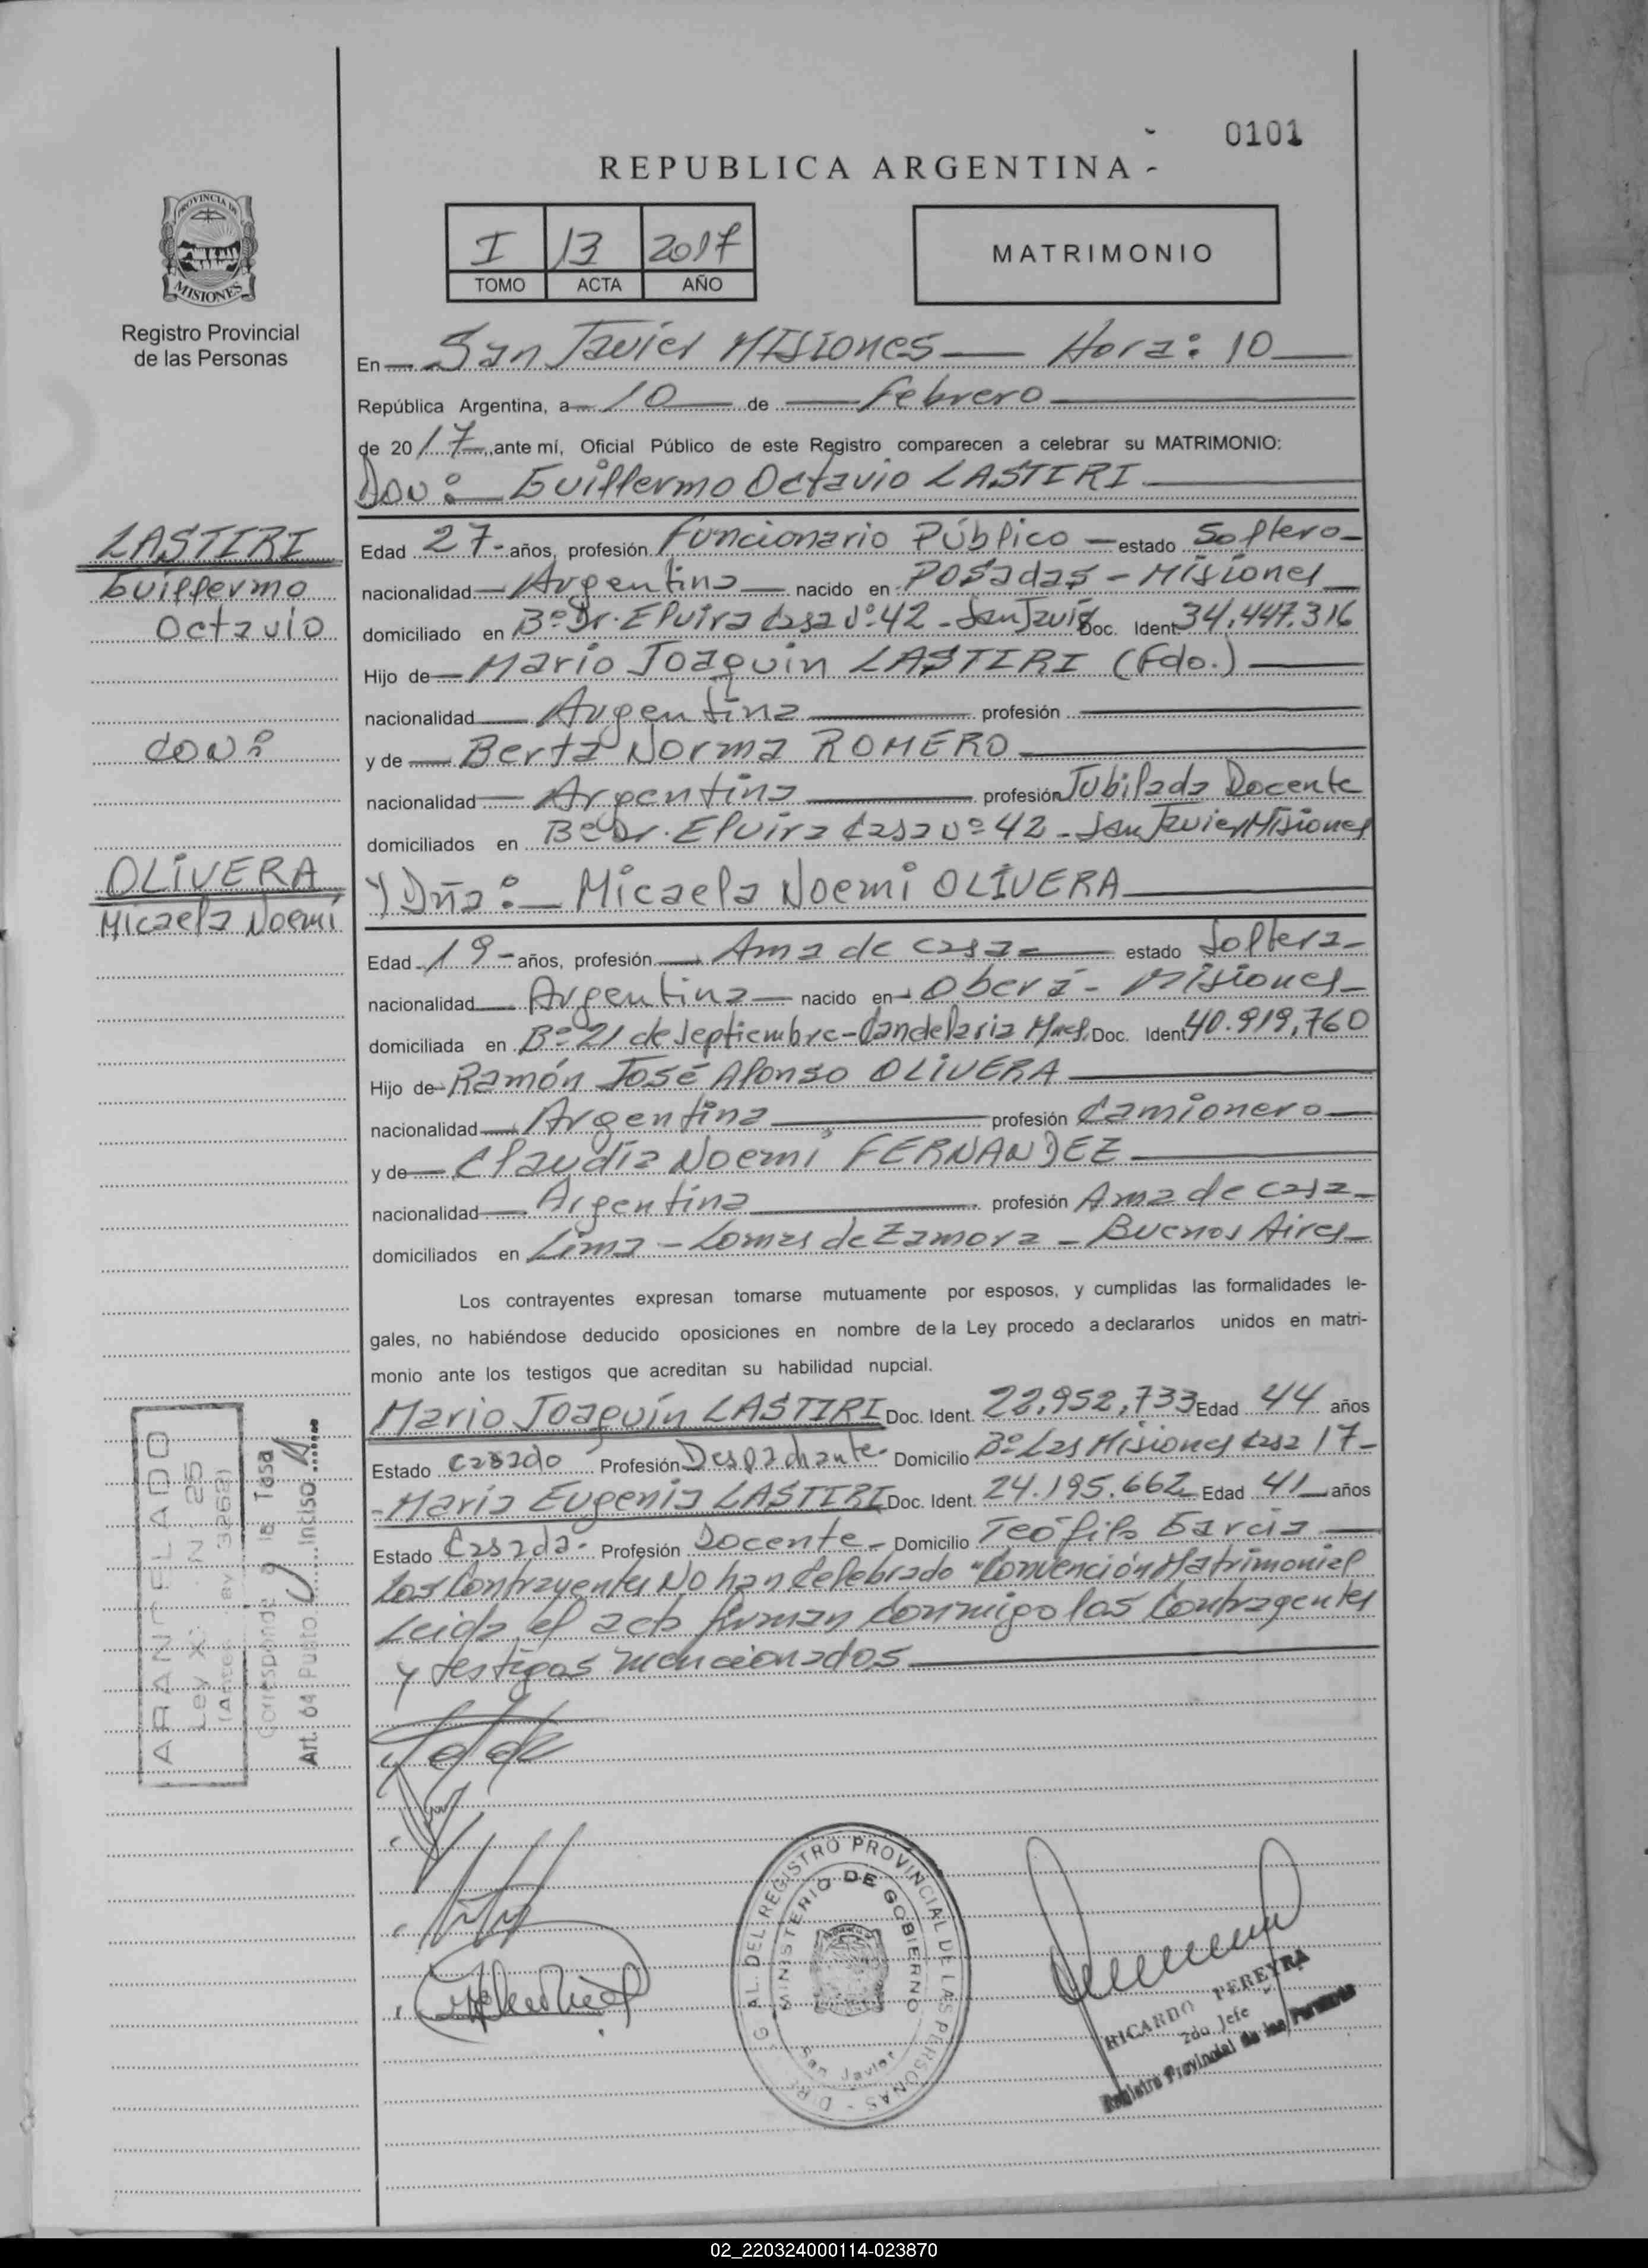 0101
REPUBLICA ARGENTINA -
PROVINCIA DE
MISIONES
Registro Provincial
de las Personas
I 13 2017
TOMO ACTA AÑO
MATRIMONIO
En San Javier Misiones Hora: 10
República Argentina, a 10 de Febrero
de 2017, ante mí, Oficial Público de este Registro comparecen a celebrar su MATRIMONIO:
Don: Guillermo Octavio LASTIRI
LASTIRI
Guillermo
Octavio
con:
OLIVERA
Micaela Noemí
Edad 27- años, profesión Funcionario Público - estado Soltero-
nacionalidad Argentina nacido en Posadas - Misiones
domiciliado en Bº Dr. Elvira Casa Nº 42 - San Javier Doc. Ident. 34.447.316
Hijo de Mario Joaquin LASTIRI (Fdo.)
nacionalidad Argentina profesión
y de Berta Norma ROMERO
nacionalidad Argentina profesión Jubilada Docente
domiciliados en Bº Dr. Elvira Casa Nº 42 - San Javier Misiones
Y Dña: Micaela Noemi OLIVERA
Edad 19- años, profesión Ama de casa estado Soltera-
nacionalidad Argentina nacido en Oberá - Misiones-
domiciliada en Bº 21 de Septiembre - Candelaria Doc. Ident 40.919.760
Hijo de Ramón José Alonso OLIVERA
nacionalidad Argentina profesión Camionero
y de Claudia Noemi FERNANDEZ
nacionalidad Argentina profesión Ama de casa-
domiciliados en Lima - Lomas de Zamora - Buenos Aires-
Los contrayentes expresan tomarse mutuamente por esposos, y cumplidas las formalidades le-
gales, no habiéndose deducido oposiciones en nombre de la Ley procedo a declararlos unidos en matri-
monio ante los testigos que acreditan su habilidad nupcial.
Mario Joaquín LASTIRI Doc. Ident. 22.952.733 Edad 44 años
Estado casado Profesión Despachante Domicilio Bº Las Misiones Casa 17-
- María Eugenia LASTIRI Doc. Ident. 24.195.662 Edad 41 años
Estado Casada- Profesión Docente- Domicilio Teófilo Garcia
Los Contrayentes No han Celebrado "Convención Matrimonial
Leida el acta firman conmigo los Contrayentes
y testigos mencionados
ARANCELADO
Ley X: N: 25
(Antes Ley 3268)
Corresponde a la Tasa
Art. 64 Punto Inciso
DIREC. GRAL. DEL REGISTRO PROVINCIAL DE LAS PERSONAS
MINISTERIO DE GOBIERNO
San Javier
RICARDO PEREYRA
2do Jefe
Registro Provincial de las Personas
02_220324000114-023870